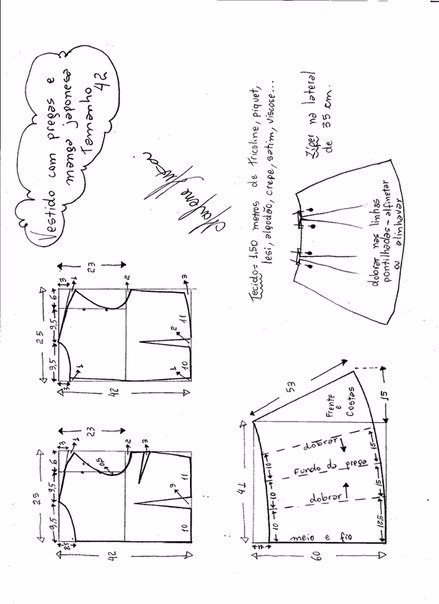 Vestido com pregas e
manga japonesa
Tamanho
42
Marlene Mukai
Tecido = 1,50 metros de tricoline, piquet,
lesi, algodão, crepe, satim, viscose...
Zíper na lateral
de 35 cm.
dobrar nas linhas
pontilhadas - alfinetar
ou alinhavar
25
9,5
9,5
6
3
1
23
2
3
42
1
2
10
11
25
9,5
9,5
6
3
23
2
3
42
3
10
11
53
41
60
15
Frente
e
Costas
dobrar
Fundo da prega
dobrar
meio e fio
10
10
10
15
15
12,5